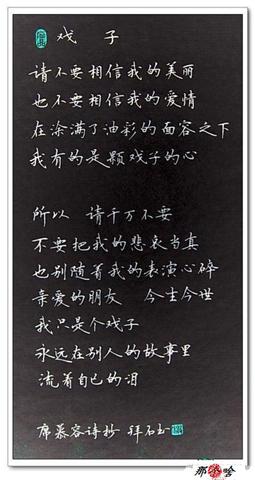 戏 子
请不要相信我的美丽
也不要相信我的爱情
在涂满了油彩的面容之下
我有的是颗戏子的心
所以 请千万不要
不要把我的悲哀当真
也别随着我的表演心碎
亲爱的朋友 今生今世
我只是个戏子
永远在别人的故事里
流着自己的泪
席慕容诗抄 拜石玉